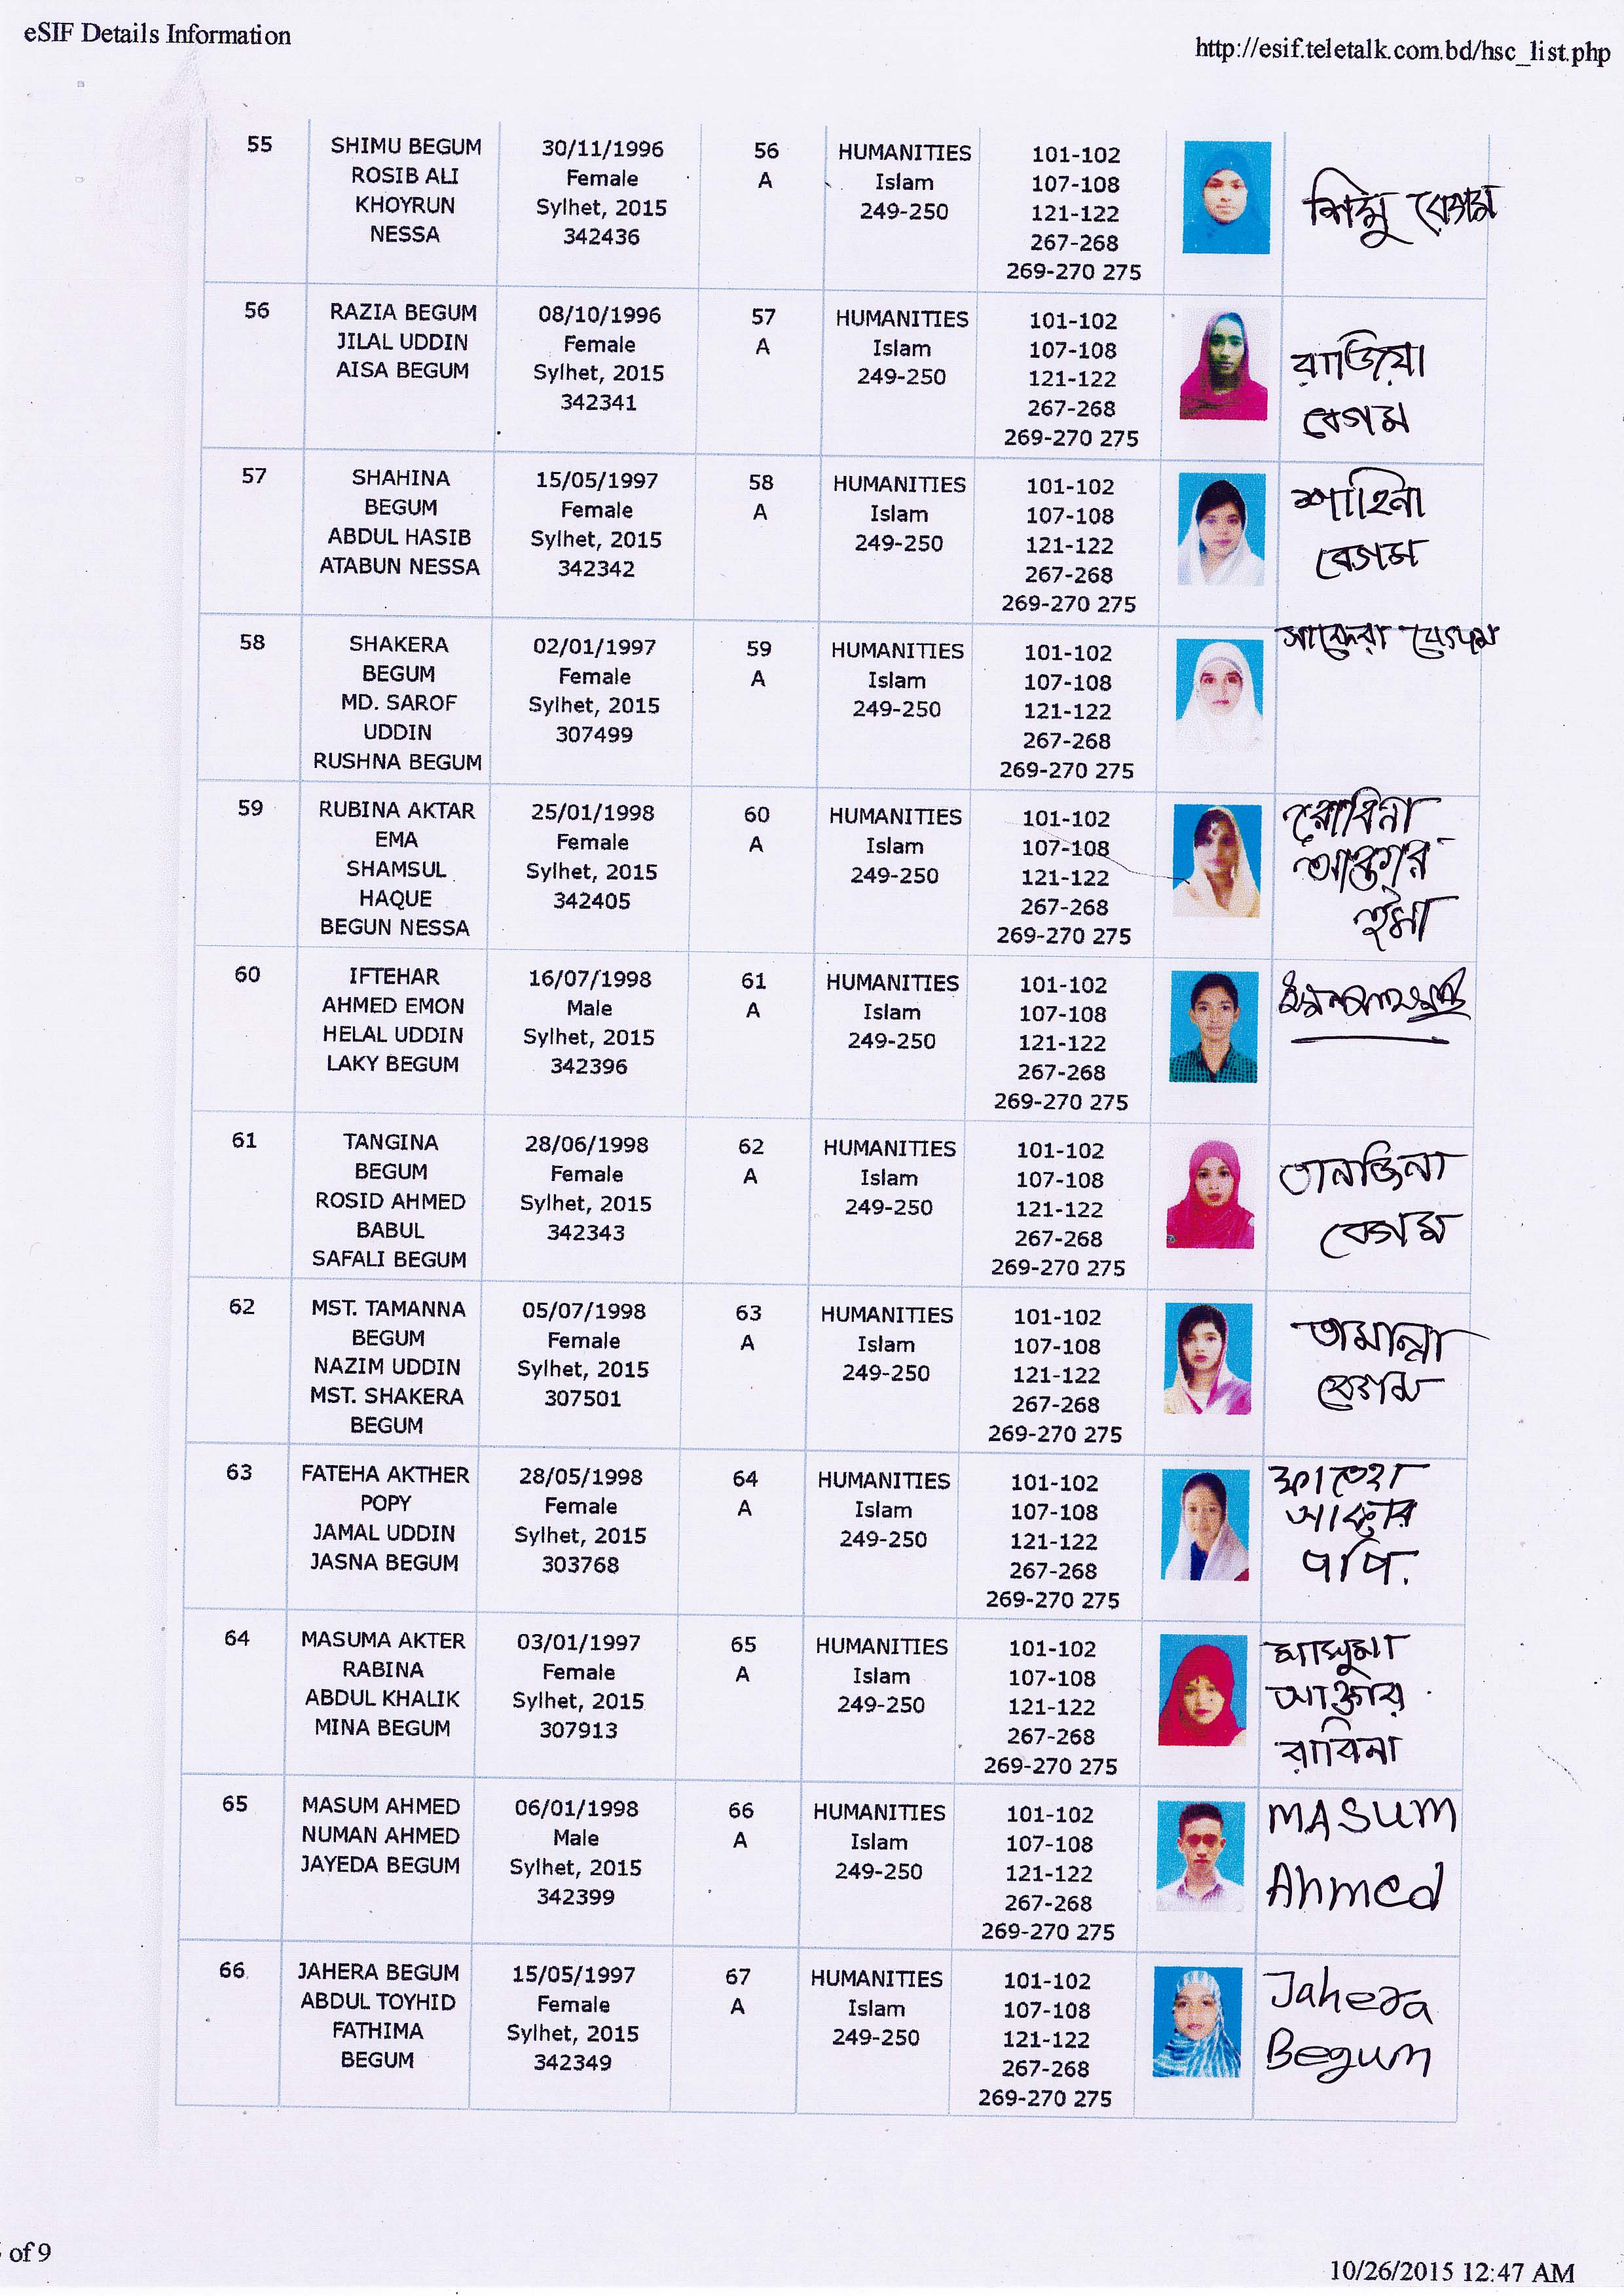 eSIF Details Information
http://esif.teletalk.com.bd/hsc_list.php
55
SHIMU BEGUM
ROSIB ALI
KHOYRUN
NESSA
30/11/1996
Female
Sylhet, 2015
342436
56
A
HUMANITIES
Islam
249-250
101-102
107-108
121-122
267-268
269-270 275
শিমু বেগম
56
RAZIA BEGUM
JILAL UDDIN
AISA BEGUM
08/10/1996
Female
Sylhet, 2015
342341
57
A
HUMANITIES
Islam
249-250
101-102
107-108
121-122
267-268
269-270 275
রাজিয়া
বেগম
57
SHAHINA
BEGUM
ABDUL HASIB
ATABUN NESSA
15/05/1997
Female
Sylhet, 2015
342342
58
A
HUMANITIES
Islam
249-250
101-102
107-108
121-122
267-268
269-270 275
শাহিনা
বেগম
58
SHAKERA
BEGUM
MD. SAROF
UDDIN
RUSHNA BEGUM
02/01/1997
Female
Sylhet, 2015
307499
59
A
HUMANITIES
Islam
249-250
101-102
107-108
121-122
267-268
269-270 275
সাকেরা বেগম
59
RUBINA AKTAR
EMA
SHAMSUL
HAQUE
BEGUN NESSA
25/01/1998
Female
Sylhet, 2015
342405
60
A
HUMANITIES
Islam
249-250
101-102
107-108
121-122
267-268
269-270 275
রোবিনা
আক্তার
ইমা
60
IFTEHAR
AHMED EMON
HELAL UDDIN
LAKY BEGUM
16/07/1998
Male
Sylhet, 2015
342396
61
A
HUMANITIES
Islam
249-250
101-102
107-108
121-122
267-268
269-270 275
61
TANGINA
BEGUM
ROSID AHMED
BABUL
SAFALI BEGUM
28/06/1998
Female
Sylhet, 2015
342343
62
A
HUMANITIES
Islam
249-250
101-102
107-108
121-122
267-268
269-270 275
তানজিনা
বেগম
62
MST. TAMANNA
BEGUM
NAZIM UDDIN
MST. SHAKERA
BEGUM
05/07/1998
Female
Sylhet, 2015
307501
63
A
HUMANITIES
Islam
249-250
101-102
107-108
121-122
267-268
269-270 275
তামান্না
বেগম
63
FATEHA AKTHER
POPY
JAMAL UDDIN
JASNA BEGUM
28/05/1998
Female
Sylhet, 2015
303768
64
A
HUMANITIES
Islam
249-250
101-102
107-108
121-122
267-268
269-270 275
ফাতেহা
আক্তার
পপি.
64
MASUMA AKTER
RABINA
ABDUL KHALIK
MINA BEGUM
03/01/1997
Female
Sylhet, 2015
307913
65
A
HUMANITIES
Islam
249-250
101-102
107-108
121-122
267-268
269-270 275
মাসুমা
আক্তার
রাবিনা
65
MASUM AHMED
NUMAN AHMED
JAYEDA BEGUM
06/01/1998
Male
Sylhet, 2015
342399
66
A
HUMANITIES
Islam
249-250
101-102
107-108
121-122
267-268
269-270 275
MASUM
Ahmed
66
JAHERA BEGUM
ABDUL TOYHID
FATHIMA
BEGUM
15/05/1997
Female
Sylhet, 2015
342349
67
A
HUMANITIES
Islam
249-250
101-102
107-108
121-122
267-268
269-270 275
Jahera
Begum
of 9
10/26/2015 12:47 AM